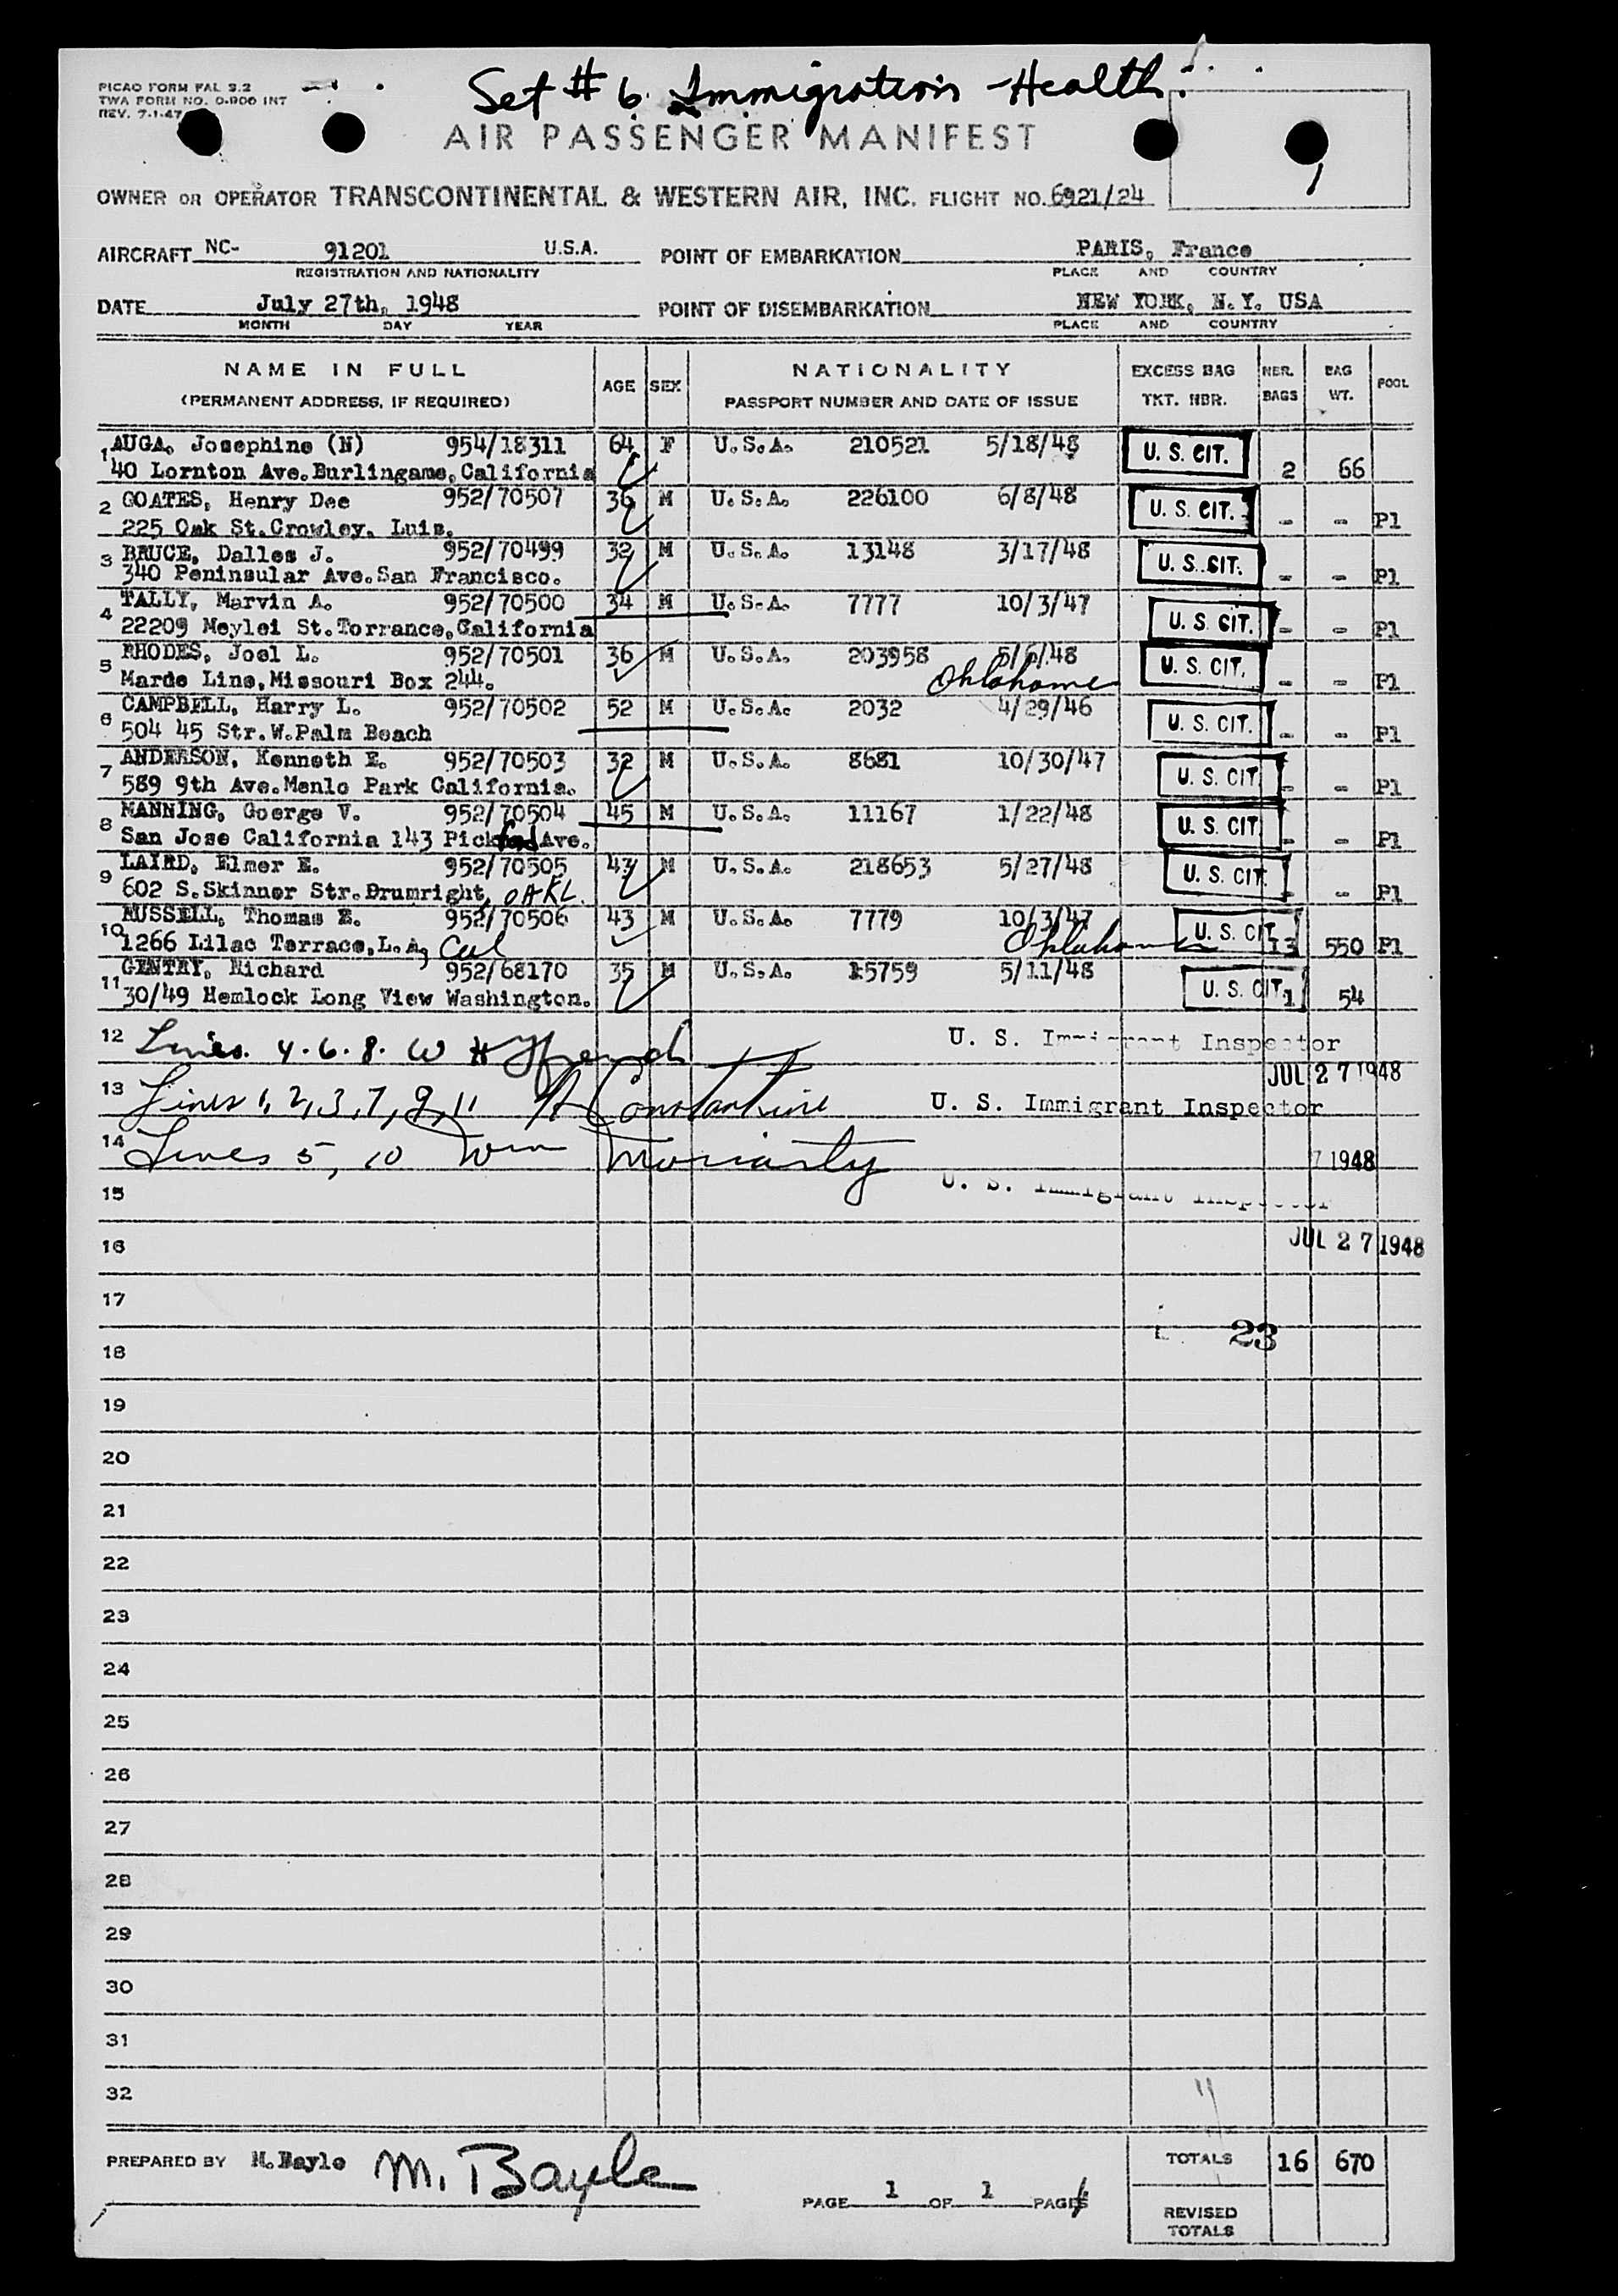 PICAO FORM FAL 3.2
TWA FORM NO. O-900 INT
REV. 7-1-47
Set # 6 Immigration - Health
AIR PASSENGER MANIFEST
1
OWNER OR OPERATOR TRANSCONTINENTAL & WESTERN AIR, INC. FLIGHT NO. 6921/24
AIRCRAFT NC- 91201 U.S.A. POINT OF EMBARKATION PARIS, France
REGISTRATION AND NATIONALITY PLACE AND COUNTRY
DATE July 27th, 1948 POINT OF DISEMBARKATION NEW YORK, N.Y. USA
MONTH DAY YEAR PLACE AND COUNTRY
NAME IN FULL AGE SEX NATIONALITY EXCESS BAG NBR. BAG POOL
(PERMANENT ADDRESS, IF REQUIRED) PASSPORT NUMBER AND DATE OF ISSUE TKT. NBR. BAGS WT.
1 AUGA, Josephine (N) 954/18311 64 F U.S.A. 210521 5/18/48 U. S. CIT.
40 Lornton Ave.Burlingame,California 2 66
2 COATES, Henry Dee 952/70507 36 M U.S.A. 226100 6/8/48 U. S. CIT.
225 Oak St.Crowley. Luis. - - Pl
3 BRUCE, Dalles J. 952/70499 32 M U.S.A. 13148 3/17/48 U. S. CIT.
340 Peninsular Ave.San Francisco. - - Pl
4 TALLY, Marvin A. 952/70500 34 M U.S.A. 7777 10/3/47 U. S. CIT.
22209 Meylei St.Torrance,California - - Pl
5 RHODES, Joel L. 952/70501 36 M U.S.A. 203958 5/6/48 U. S. CIT.
Marde Line,Missouri Box 244. Oklahoma - - Pl
6 CAMPBELL, Harry L. 952/70502 52 M U.S.A. 2032 4/29/46 U. S. CIT.
504 45 Str.W.Palm Beach - - Pl
7 ANDERSON, Kenneth E. 952/70503 32 M U.S.A. 8681 10/30/47 U. S. CIT
589 9th Ave.Menlo Park California. - - Pl
8 MANNING, Goerge V. 952/70504 45 M U.S.A. 11167 1/22/48 U. S. CIT
San Jose California 143 Pickford Ave. - - Pl
9 LAIRD, Elmer E. 952/70505 43 M U.S.A. 218653 5/27/48 U. S. CIT.
602 S.Skinner Str.Drumright, OAKL. - - Pl
10 RUSSELL, Thomas E. 952/70506 43 M U.S.A. 7779 10/3/47 U. S. CIT
1266 Lilac Terrace,L.A, Cal Oklahoma 13 550 Pl
11 GENTRY, Richard 952/68170 35 M U.S.A. 15759 5/11/48
30/49 Hemlock Long View Washington. U. S. CIT. 1 54
12 Lines. 4.6.8. U. S. Immigrant Inspector
JUL 27 1948
13 Lines 1, 2, 3, 7, 9, 11 Constantine U. S. Immigrant Inspector
14 Lines 5, 10 Wm Moriarty 7 1948
U. S. Immigrant Inspector
15
16 JUL 27 1948
17
23
18
19
20
21
22
23
24
25
26
27
28
29
30
31
32
PREPARED BY M.Bayle M. Bayle TOTALS 16 670
PAGE 1 OF 1 PAGES
REVISED
TOTALS